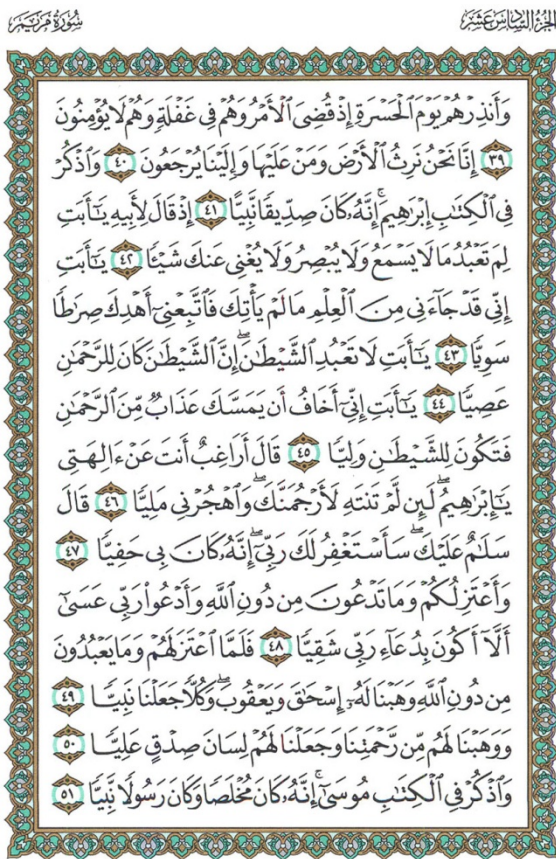 الجزء السادس عشر
سورة مريم
وَأَنذِرْهُمْ يَوْمَ ٱلْحَسْرَةِ إِذْ قُضِىَ ٱلْأَمْرُ وَهُمْ فِى غَفْلَةٍ وَهُمْ لَا يُؤْمِنُونَ
٣٩ إِنَّا نَحْنُ نَرِثُ ٱلْأَرْضَ وَمَنْ عَلَيْهَا وَإِلَيْنَا يُرْجَعُونَ ٤٠ وَٱذْكُرْ
فِى ٱلْكِتَٰبِ إِبْرَٰهِيمَ ۚ إِنَّهُۥ كَانَ صِدِّيقًا نَّبِيًّا ٤١ إِذْ قَالَ لِأَبِيهِ يَٰٓأَبَتِ
لِمَ تَعْبُدُ مَا لَا يَسْمَعُ وَلَا يُبْصِرُ وَلَا يُغْنِى عَنكَ شَيْـًٔا ٤٢ يَٰٓأَبَتِ
إِنِّى قَدْ جَآءَنِى مِنَ ٱلْعِلْمِ مَا لَمْ يَأْتِكَ فَٱتَّبِعْنِىٓ أَهْدِكَ صِرَٰطًا
سَوِيًّا ٤٣ يَٰٓأَبَتِ لَا تَعْبُدِ ٱلشَّيْطَٰنَ ۖ إِنَّ ٱلشَّيْطَٰنَ كَانَ لِلرَّحْمَٰنِ
عَصِيًّا ٤٤ يَٰٓأَبَتِ إِنِّىٓ أَخَافُ أَن يَمَسَّكَ عَذَابٌ مِّنَ ٱلرَّحْمَٰنِ
فَتَكُونَ لِلشَّيْطَٰنِ وَلِيًّا ٤٥ قَالَ أَرَاغِبٌ أَنتَ عَنْ ءَالِهَتِى
يَٰٓإِبْرَٰهِيمُ ۖ لَئِن لَّمْ تَنتَهِ لَأَرْجُمَنَّكَ ۖ وَٱهْجُرْنِى مَلِيًّا ٤٦ قَالَ
سَلَٰمٌ عَلَيْكَ ۖ سَأَسْتَغْفِرُ لَكَ رَبِّىٓ ۖ إِنَّهُۥ كَانَ بِى حَفِيًّا ٤٧
وَأَعْتَزِلُكُمْ وَمَا تَدْعُونَ مِن دُونِ ٱللَّهِ وَأَدْعُوا۟ رَبِّى عَسَىٰٓ
أَلَّآ أَكُونَ بِدُعَآءِ رَبِّى شَقِيًّا ٤٨ فَلَمَّا ٱعْتَزَلَهُمْ وَمَا يَعْبُدُونَ
مِن دُونِ ٱللَّهِ وَهَبْنَا لَهُۥٓ إِسْحَٰقَ وَيَعْقُوبَ ۖ وَكُلًّا جَعَلْنَا نَبِيًّا ٤٩
وَوَهَبْنَا لَهُم مِّن رَّحْمَتِنَا وَجَعَلْنَا لَهُمْ لِسَانَ صِدْقٍ عَلِيًّا ٥٠
وَٱذْكُرْ فِى ٱلْكِتَٰبِ مُوسَىٰٓ ۚ إِنَّهُۥ كَانَ مُخْلَصًا وَكَانَ رَسُولًا نَّبِيًّا ٥١